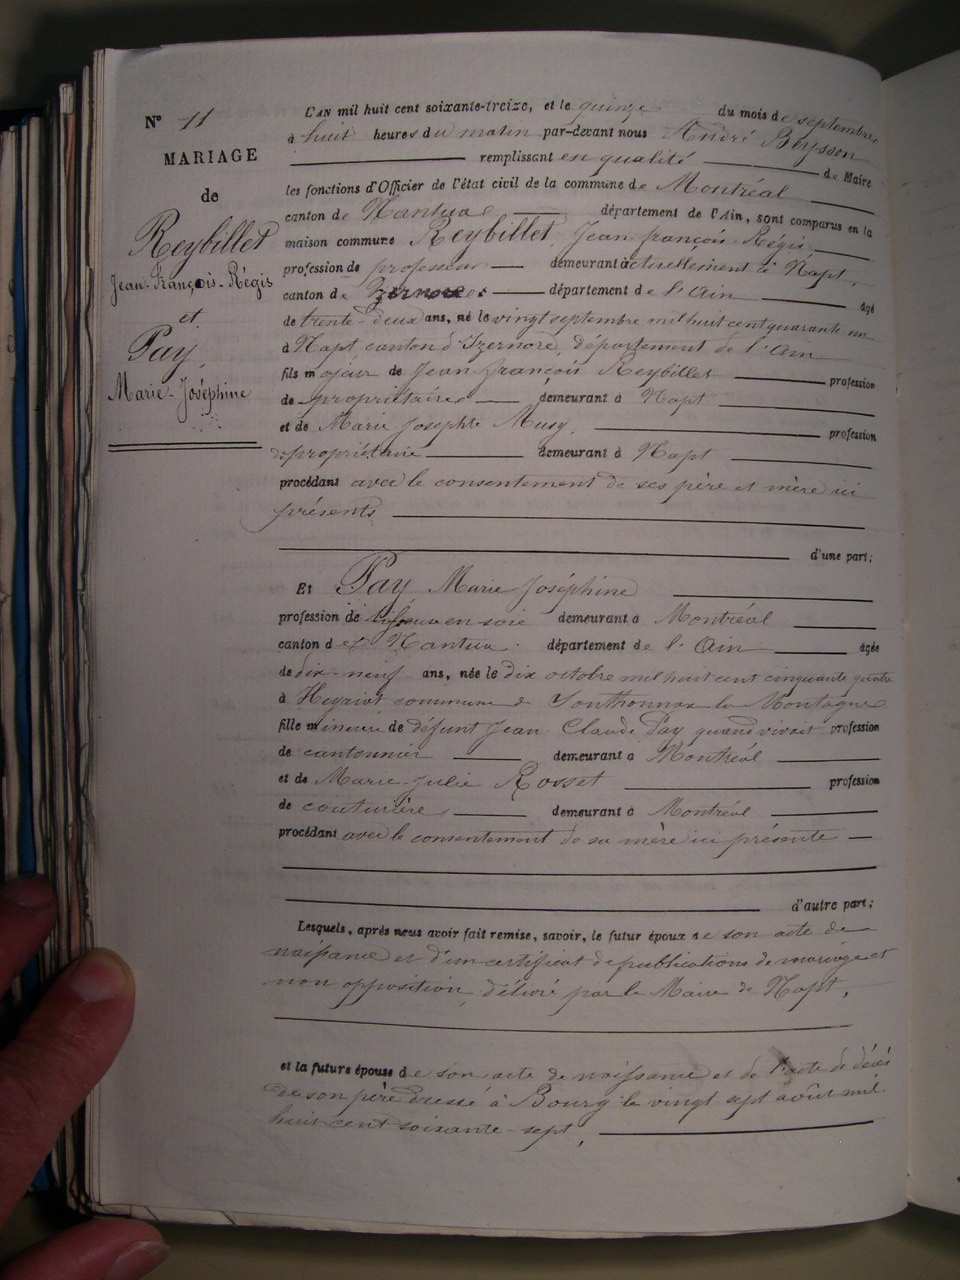 N° 11
MARIAGE
de
Reybillet
Jean-François-Régis
et
Pay
Marie-Joséphine
L'AN mil huit cent soixante-treize, et le quinze du mois de septembre
à huit heures du matin par-devant nous André Beysson
remplissant en qualité de Maire
les fonctions d'Officier de l'état civil de la commune de Montréal
canton de Nantua département de l'Ain, sont comparus en la
maison commune Reybillet, Jean françois Régis
profession de professeur demeurant actuellement à Napt,
canton de Izernore département de l'Ain âgé
de trente-deux ans, né le vingt septembre mil huit cent quarante un
à Napt, canton d'Izernore, département de l'Ain
fils majeur de Jean françois Reybillet profession
de propriétaire demeurant à Napt
et de Marie Josephte Musy, profession
de propriétaire demeurant à Napt
procédant avec le consentement de ses père et mère ici
présents
d'une part;
Et Pay Marie Joséphine
profession de en soie demeurant à Montréal
canton de Nantua département de l'Ain âgée
de dix-neuf ans, née le dix octobre mil huit cent cinquante quatre
à Heyriat commune de Sonthonnax la Montagne
fille mineure de défunt Jean Claude Pay quand vivait profession
de cantonnier demeurant à Montréal
et de Marie Julie Rosset profession
de couturière demeurant à Montréal
procédant avec le consentement de sa mère ici présente
d'autre part;
Lesquels, après nous avoir fait remise, savoir, le futur époux de son acte de
naissance et d'un certificat de publications de mariage et
non opposition, délivré par le Maire de Napt,
et la future épouse de son acte de naissance et de l'acte de décès
de son père dressé à Bourg le vingt sept août mil
huit cent soixante-sept,